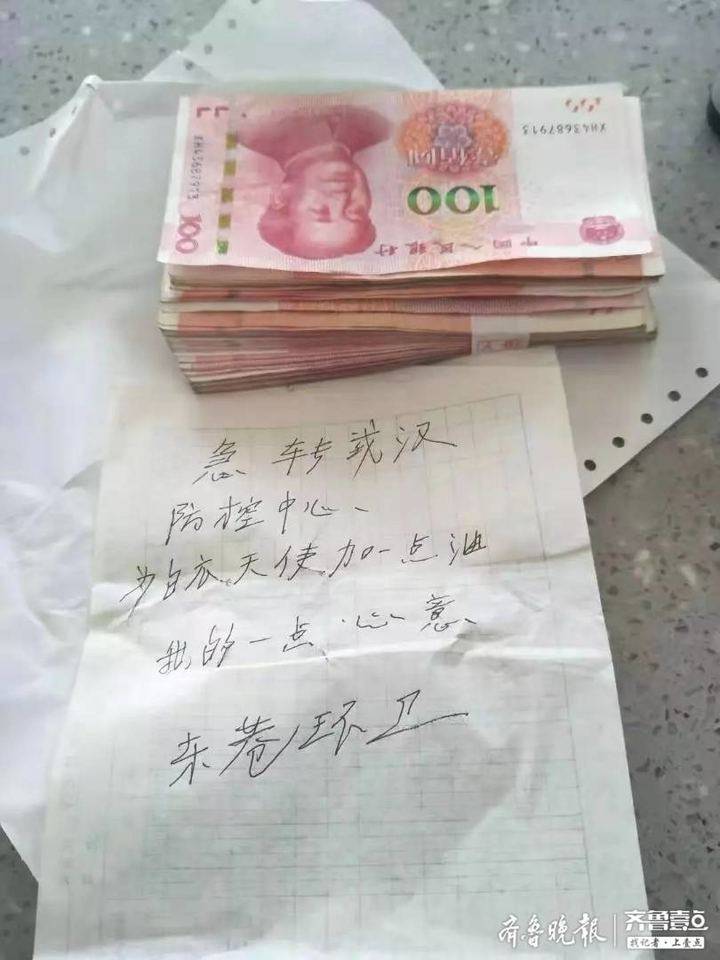 XH43687913
100
中国人民银行
XH43687913
100
急转武汉
防控中心、
为白衣天使加一点油
我的一点心意
东巷环卫
齐鲁晚报
齐鲁壹点
找记者·上壹点